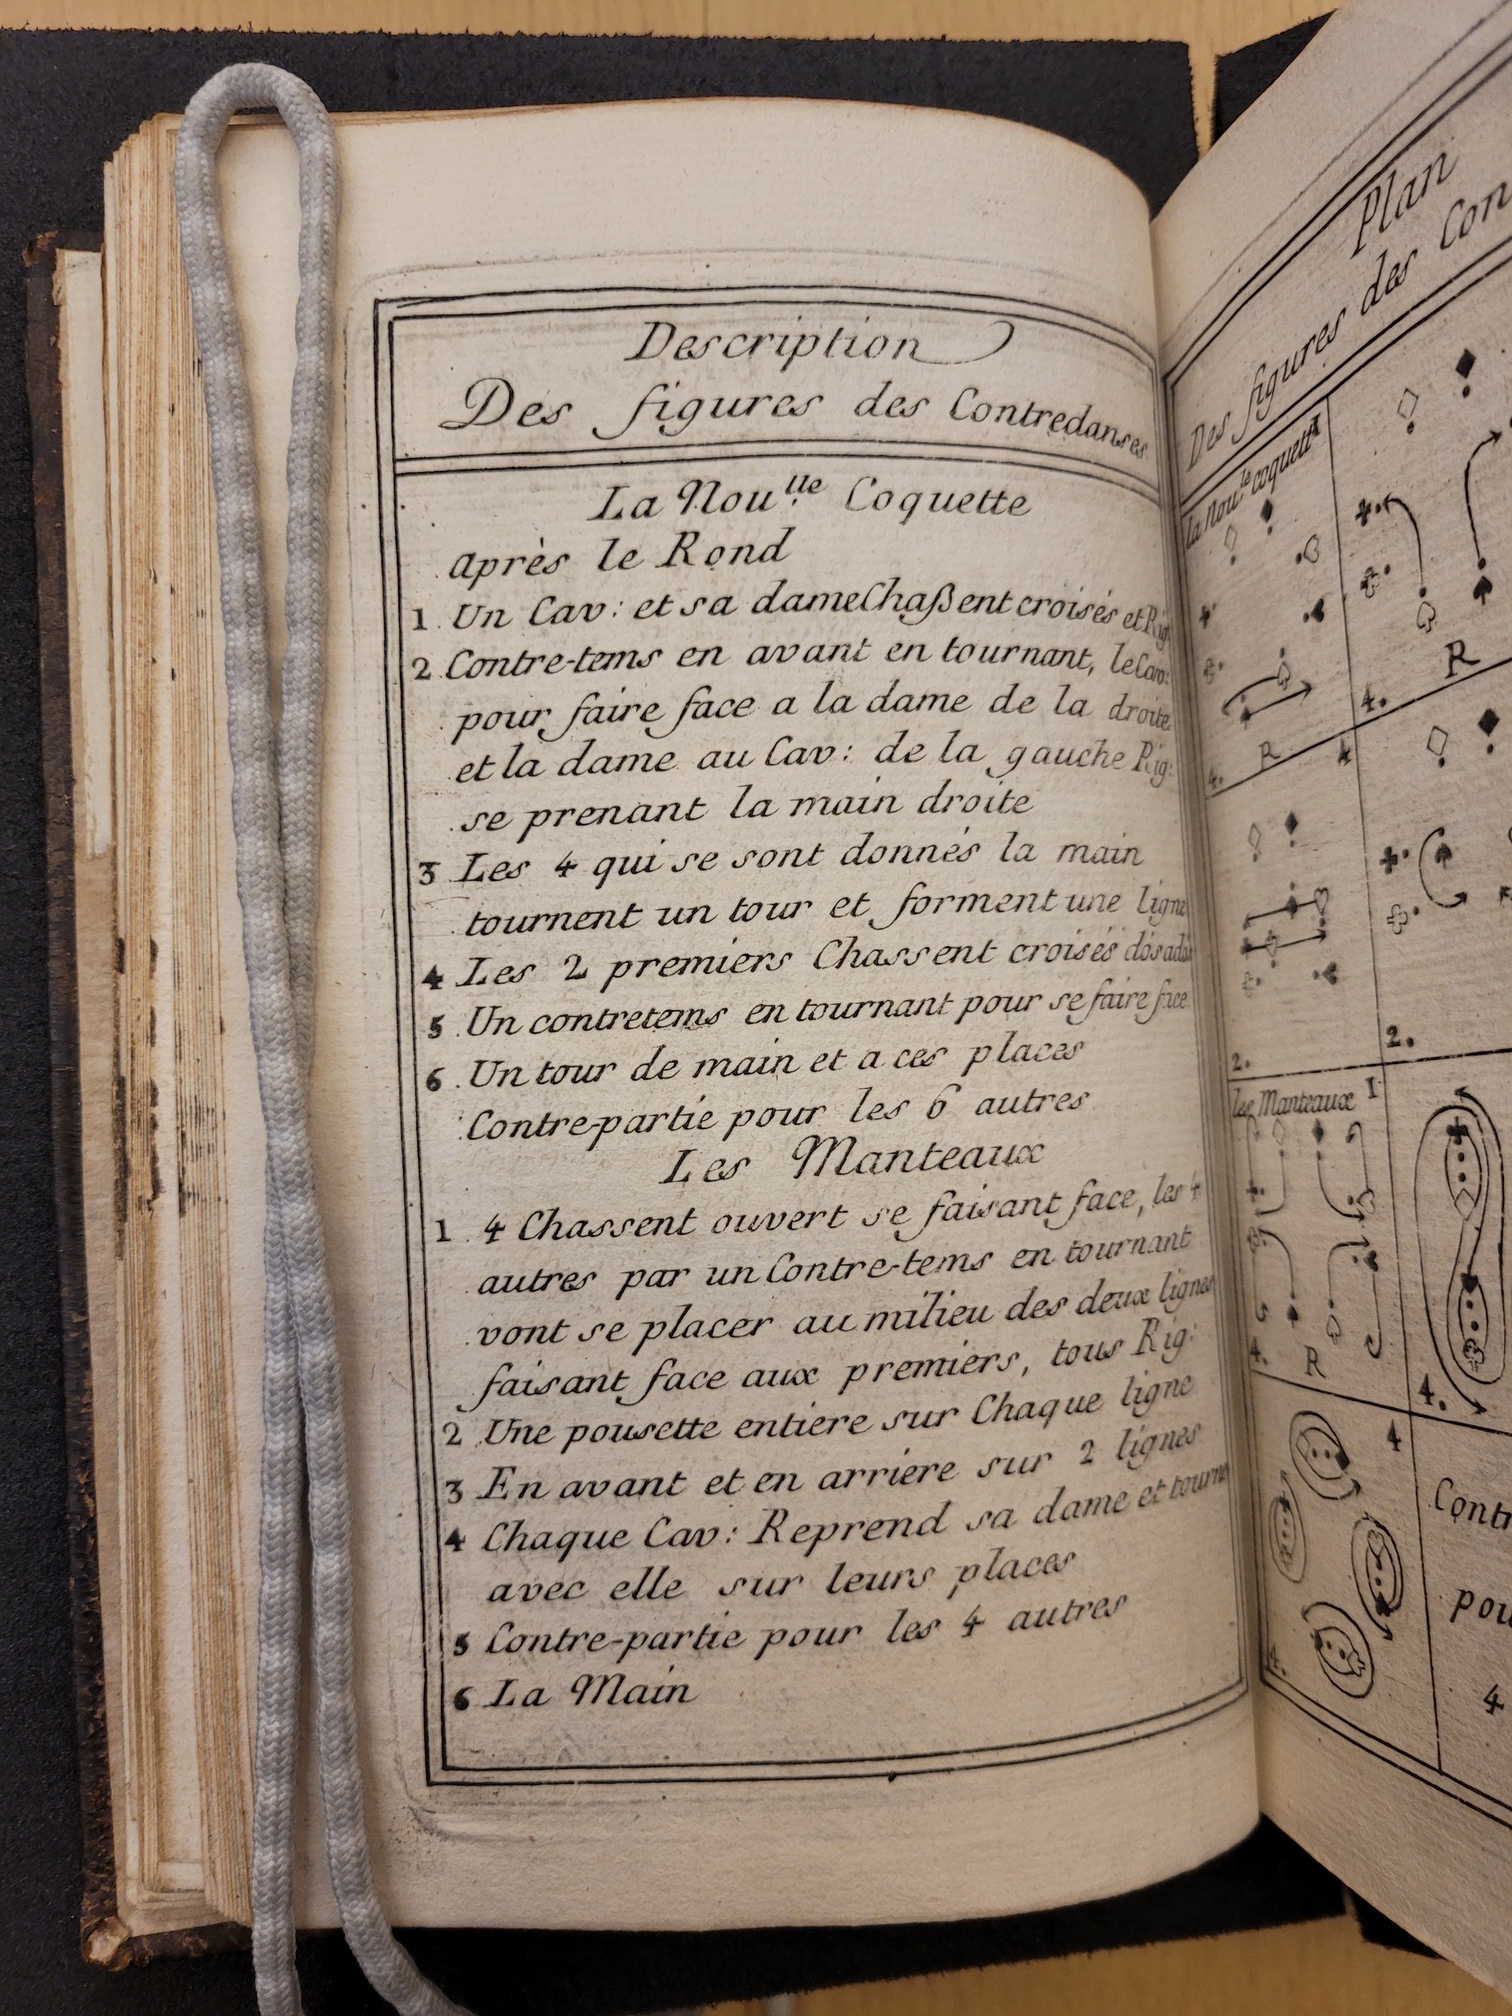 Description
Des figures des Contredanses
La Nou.lle Coquette
après le Rond
1 Un Cav: et sa dame Chaßent croisés et Rig
2 Contre-tems en avant en tournant, le Cav:
pour faire face a la dame de la droite
et la dame au Cav: de la gauche Rig:
se prenant la main droite
3 Les 4 qui se sont donnés la main
tournent un tour et forment une ligne
4 Les 2 premiers Chassent croisés dos ados
5 Un contretems en tournant pour se faire face
6 Un tour de main et a ces places
Contre-partie pour les 6 autres
Les Manteaux
1 4 Chassent ouvert se faisant face, les 4
autres par un Contre-tems en tournant
vont se placer au milieu des deux lignes
faisant face aux premiers, tous Rig:
2 Une pousette entiere sur Chaque ligne
3 En avant et en arriere sur 2 lignes
4 Chaque Cav: Reprend sa dame et tourne
avec elle sur leurs places
5 Contre-partie pour les 4 autres
6 La Main
Plan
Des figures des Con
la Nou.le coquette 1
4. R
4. R
4
2.
2.
les Manteaux 1
4. R
4.
4
Contr
pou
4